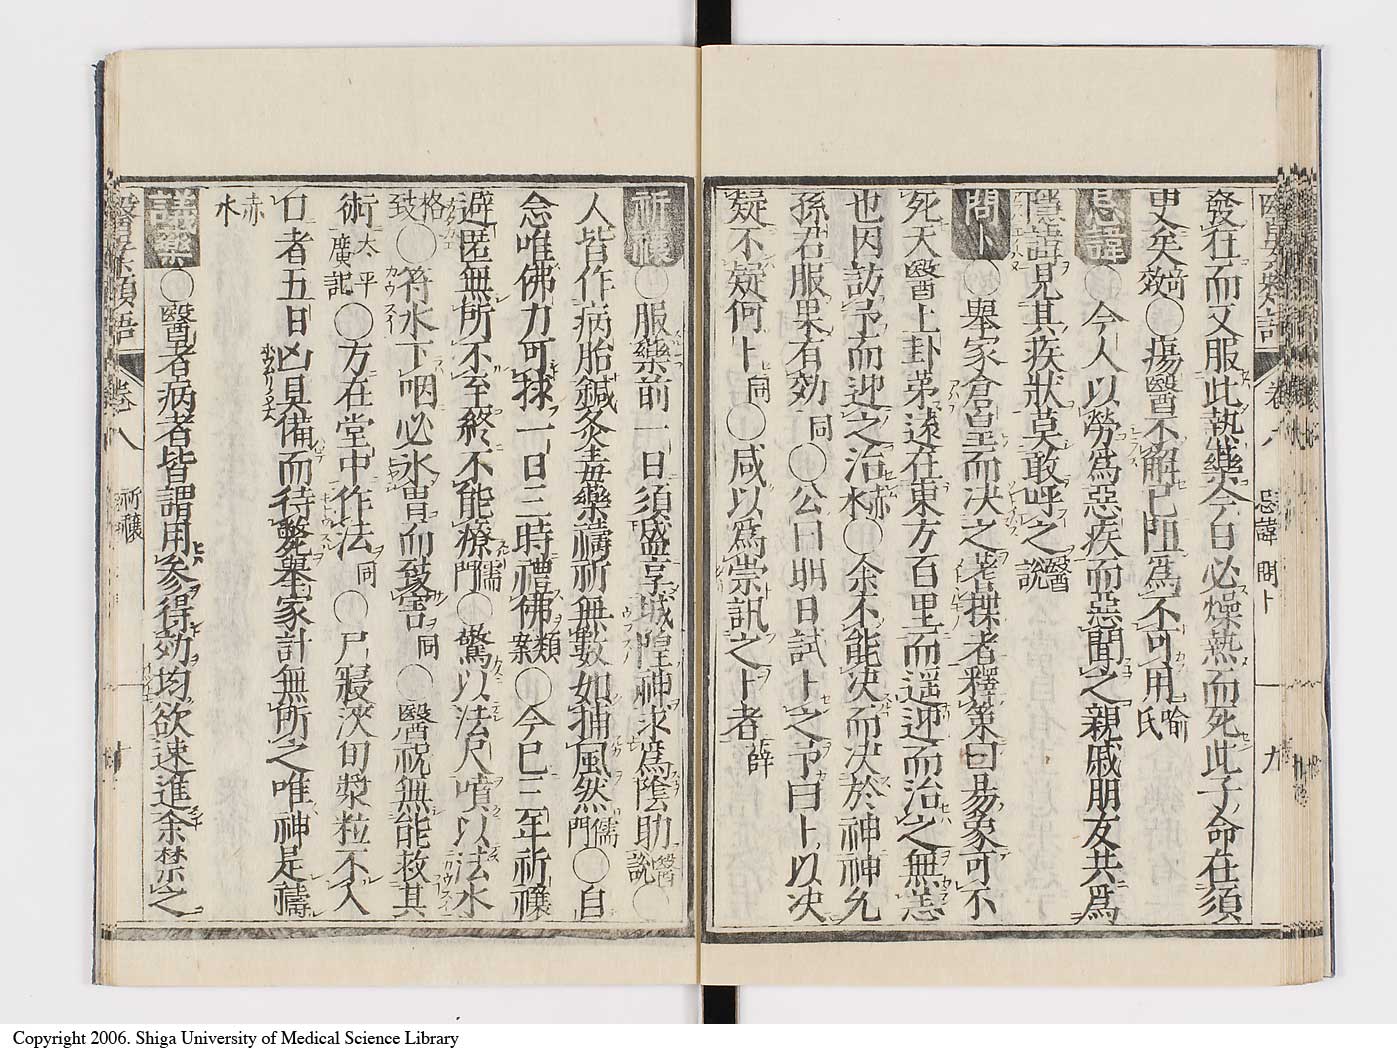 發在而又服此熱藥今日必燥熱而死此子命在須
臾矣奇效○瘍醫不解已阻為不可用喻氏
忌諱○今人以勞為惡疾而惡聞之親戚朋友共為
隱諱見其疾狀莫敢呼之醫說
問卜○舉家倉皇而决之蓍揲者釋策曰易象可不
死夭醫上卦弟遠在東方百里而遥迎而治之無恙
也因訪予而迎之治赤水○余不能决而决於神神允
孫君服果有効同○公曰明日試卜之予曰卜以决
疑不疑何卜同○咸以為祟訊之卜者薛
醫學類語 卷八 忌諱 問卜 九
祈禳○服藥前一日須盛享城隍神求為陰助醫說○
人皆作病胎鍼灸毒藥禱祈無數如捕風然儒門○自
念唯佛力可救一日三時禮佛類案○今巳三年祈禳
避匿無所不至終不能療儒門○驚以法尺噴以法水
格致○符水下咽必氷胃而致害同○醫祝無能救其
術太平廣記○方在堂中作法同○尸寢浹旬漿粒不入
口者五日凶具備而待斃舉家計無所之唯神是禱
赤水
議藥○醫者病者皆謂用參得効均欲速進余禁之
醫學類語 卷八 祈禳 十
Copyright 2006. Shiga University of Medical Science Library